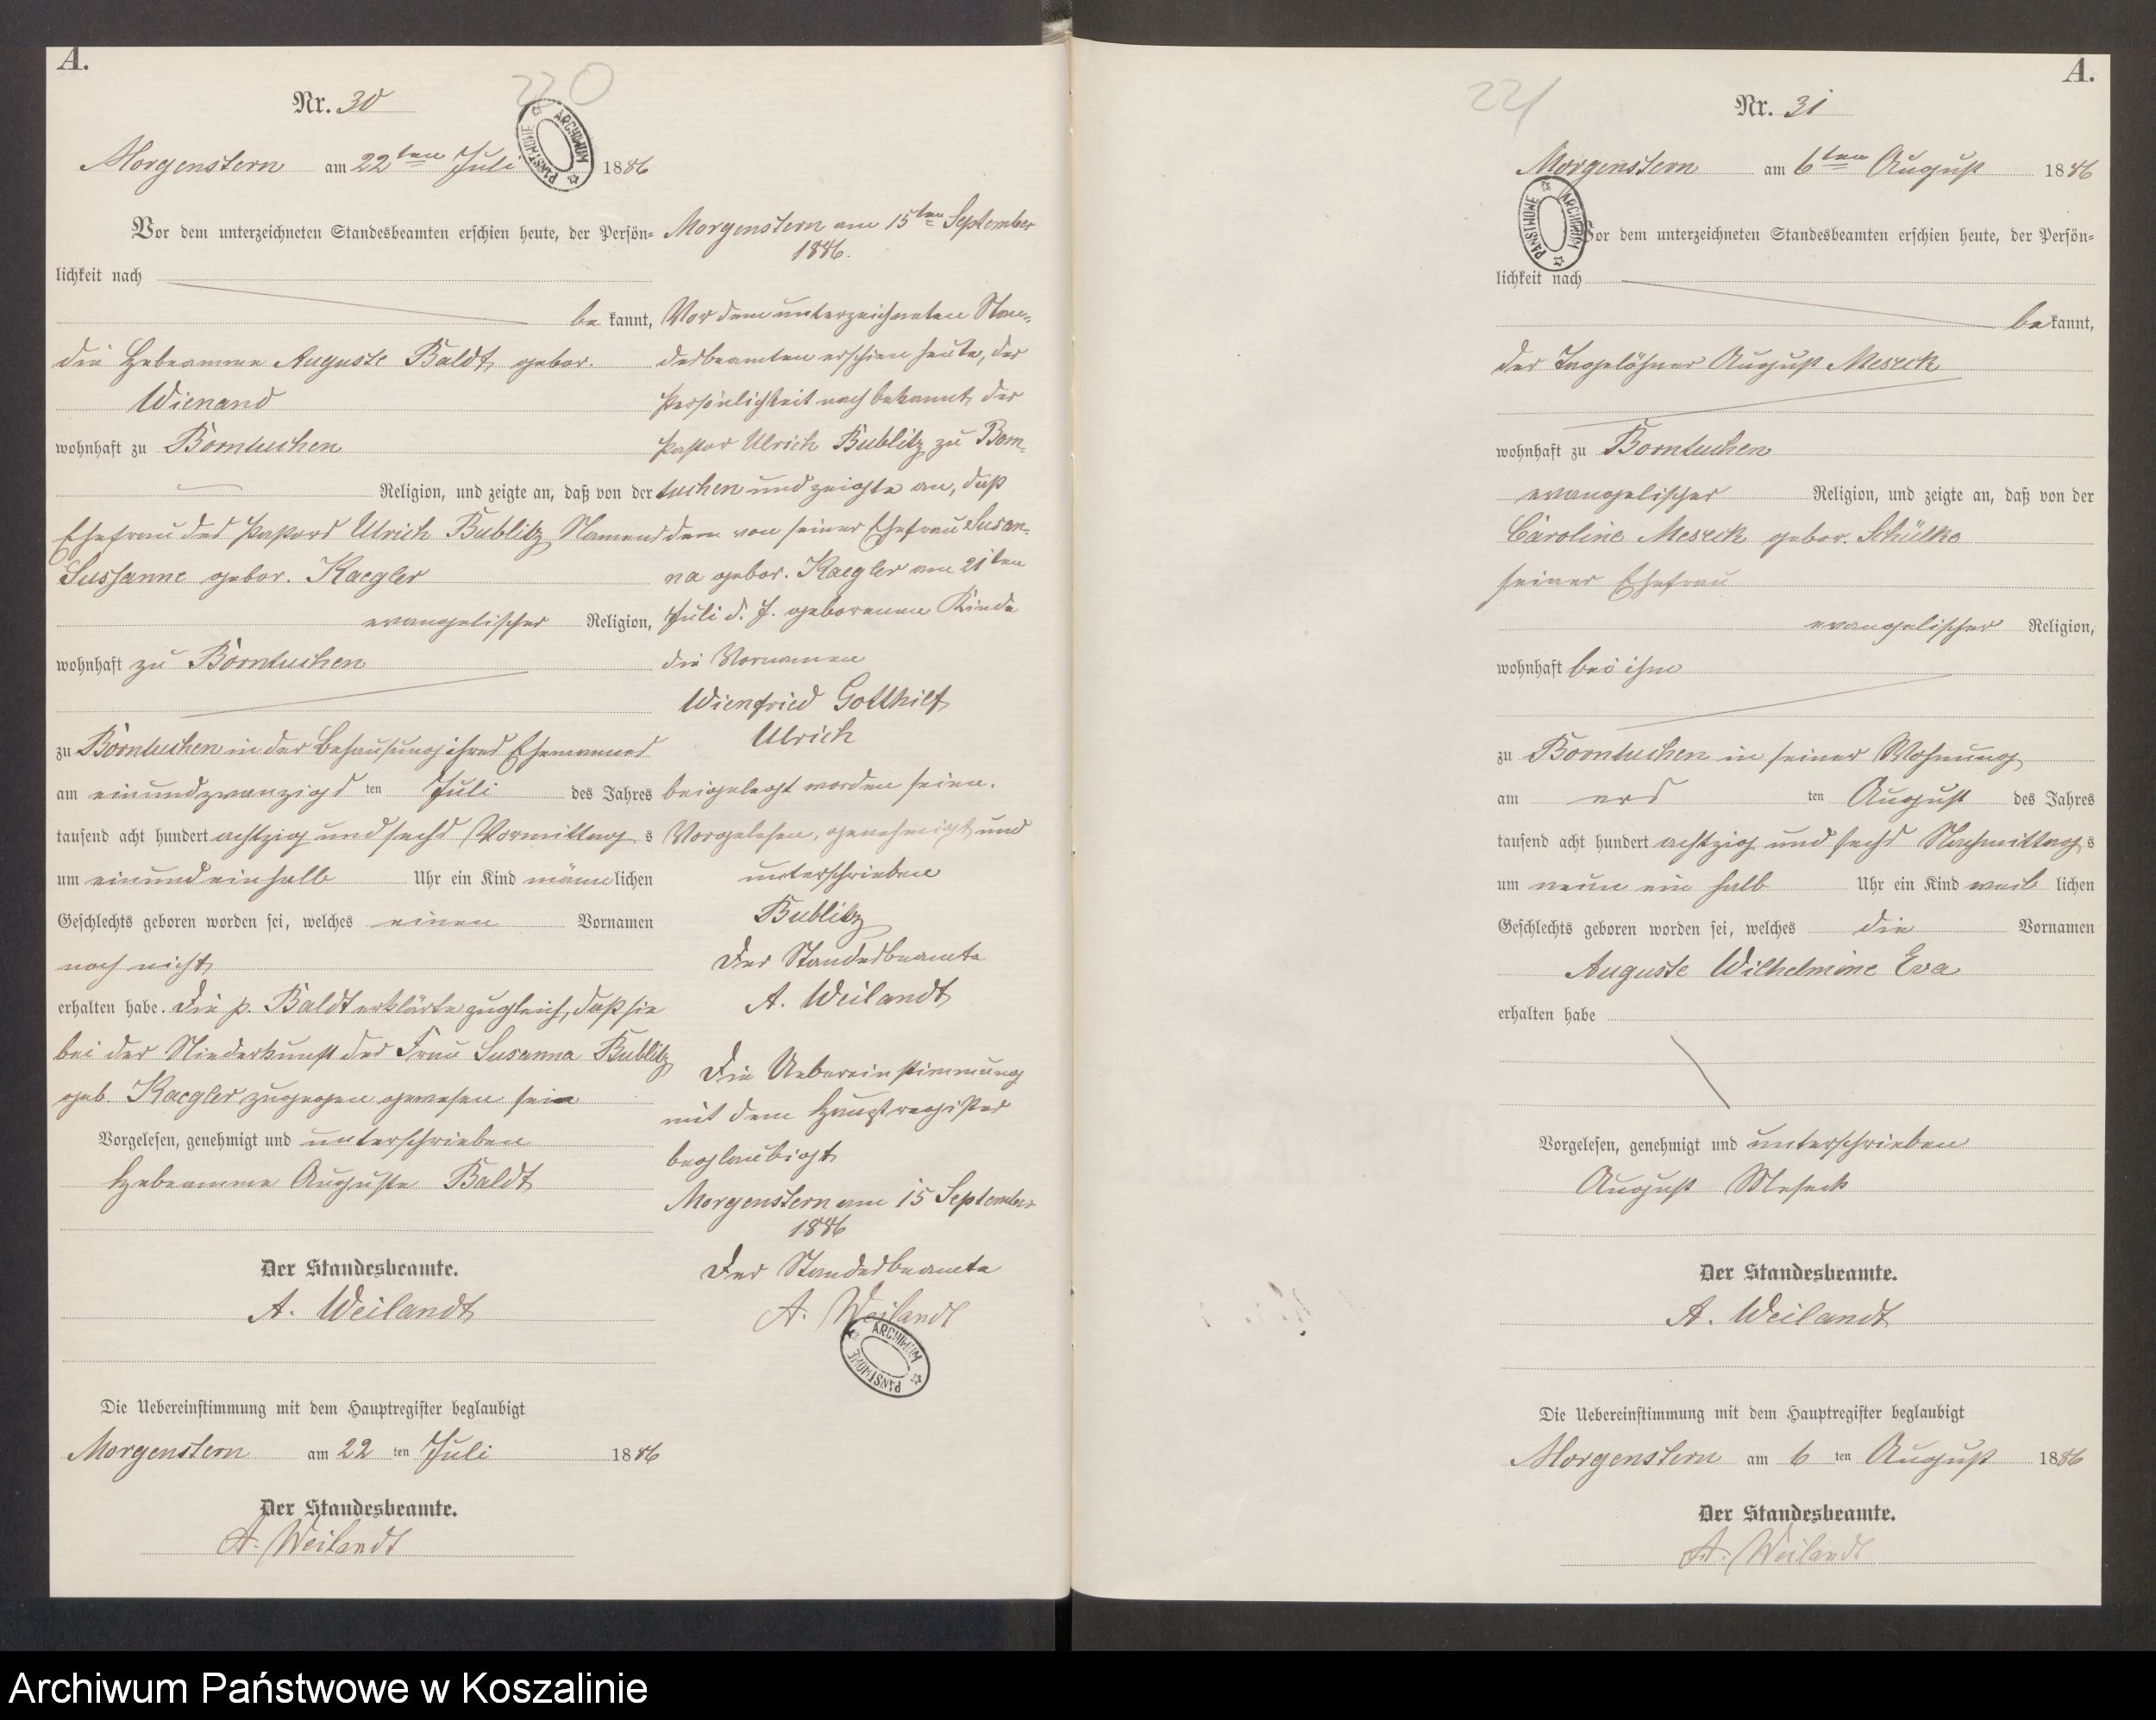 A.
220
Nr. 30
ARCHIWUM PAŃSTWOWE
Morgenstern am 22ten Juli 1886
Vor dem unterzeichneten Standesbeamten erschien heute, der Persön-
lichkeit nach
be kannt,
die Hebeamme Auguste Baldt, gebor.
Wienand
wohnhaft zu Borntuchen
Religion, und zeigte an, daß von der
Ehefrau des Pastors Ulrich Bublitz Namens
Sussanne gebor. Kaegler
evangelischer Religion,
wohnhaft zu Borntuchen
zu Borntuchen in der Behausung ihres Ehemannes
am einundzwanzigs ten Juli des Jahres
tausend acht hundert achtzig und sechs Vormittag s
um einundeinhalb Uhr ein Kind männlichen
Geschlechts geboren worden sei, welches einen Vornamen
noch nicht
erhalten habe. Die p. Baldt erklärte zugleich, daß sie
bei der Niederkunft der Frau Susanna Bublitz
geb. Kaegler zugegen gewesen sei
Vorgelesen, genehmigt und unterschrieben
Hebeamme Auguste Baldt
Der Standesbeamte.
A. Weilandt
Die Uebereinstimmung mit dem Hauptregister beglaubigt
Morgenstern am 22 ten Juli 1886
Der Standesbeamte.
A. Weilandt
Morgenstern am 15ten September
1886.
Vor dem unterzeichneten Stan-
desbeamten erschien heute, der
Persönlichkeit nach bekannt, der
Pastor Ulrich Bublitz zu Born-
tuchen und zeigte an, daß
dem von seiner Ehefrau Susan-
na gebor. Kaegler am 21ten
Juli d. J. geborenen Kinde
die Vornamen
Wienfried Gotthilf
Ulrich
beigelegt worden seien.
Vorgelesen, genehmigt und
unterschrieben
Bublitz
Der Standesbeamte
A. Weilandt
Die Uebereinstimmung
mit dem Hauptregister
beglaubigt
Morgenstern am 15 September
1886
Der Standesbeamte
A. Weilandt
ARCHIWUM PAŃSTWOWE
A.
221
Nr. 31
Morgenstern am 6ten August 1886
ARCHIWUM PAŃSTWOWE
Vor dem unterzeichneten Standesbeamten erschien heute, der Persön-
lichkeit nach
be kannt,
der Tagelöhner August Meseck
wohnhaft zu Borntuchen
evangelischer Religion, und zeigte an, daß von der
Caroline Meseck gebor. Schülke
seiner Ehefrau
evangelischer Religion,
wohnhaft bei ihm
zu Borntuchen in seiner Wohnung
am ers ten August des Jahres
tausend acht hundert achtzig und sechs Nachmittag s
um neun ein halb Uhr ein Kind weib lichen
Geschlechts geboren worden sei, welches die Vornamen
Auguste Wilhelmine Eva
erhalten habe
Vorgelesen, genehmigt und unterschrieben
August Meseck
Der Standesbeamte.
A. Weilandt
Die Uebereinstimmung mit dem Hauptregister beglaubigt
Morgenstern am 6 ten August 1886
Der Standesbeamte.
A. Weilandt
Archiwum Państwowe w Koszalinie